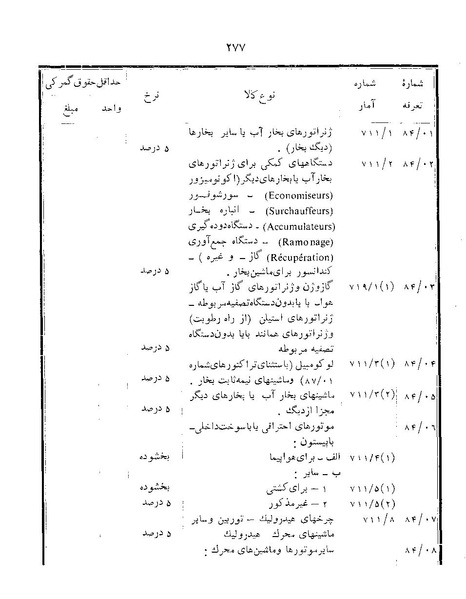 ۲۷۷
شمارهٔ شماره نوع کالا نرخ حداقل حقوق گمرکی
تعرفه آمار واحد مبلغ
۸۴/۰۱ ۷۱۱/۱ ژنراتورهای بخار آب یا سایر بخارها
(دیگ بخار) . ۵ درصد
۸۴/۰۲ ۷۱۱/۲ دستگاههای کمکی برای ژنراتورهای
بخار آب یا بخارهای دیگر (اکونومیزور
(Economiseurs) – سورشوفسور
(Surchauffeurs) – انباره بخار
(Accumulateurs) – دستگاه دوده گیری
(Ramonage) – دستگاه جمع آوری
(Récupération) گاز – و غیره ) –
کندانسور برای ماشین بخار . ۵ درصد
۸۴/۰۳ ۷۱۹/۱(۱) گازوژن و ژنراتورهای گاز آب یا گاز
هوا – با یا بدون دستگاه تصفیه مربوطه –
ژنراتورهای استیلن (از راه رطوبت)
و ژنراتورهای همانند با یا بدون دستگاه
تصفیه مربوطه ۵ درصد
۸۴/۰۴ ۷۱۱/۳(۱) لوکوموبیل (باستثنای تراکتورهای شماره
۸۷/۰۱) و ماشینهای نیمه ثابت بخار . ۵ درصد
۸۴/۰۵ ۷۱۱/۳(۲) ماشینهای بخار آب یا بخارهای دیگر
مجزا از دیگ . ۵ درصد
۸۴/۰۶ موتورهای احتراقی یا با سوخت داخلی –
با پیستون :
۷۱۱/۴(۱) الف – برای هواپیما بخشوده
ب – سایر :
۷۱۱/۵(۱) ۱ – برای کشتی بخشوده
۷۱۱/۵(۲) ۲ – غیر مذکور ۵ درصد
۸۴/۰۷ ۷۱۱/۸ چرخهای هیدرولیک – توربین و سایر
ماشینهای محرک هیدرولیک ۵ درصد
۸۴/۰۸ سایر موتورها و ماشینهای محرک :